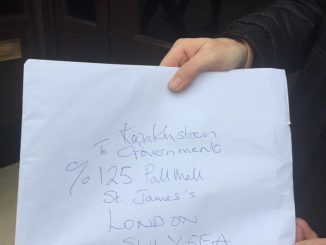 Kazakhstan
To Government
% 125 Pall Mall
St. James's
LONDON
SW1Y 5EA